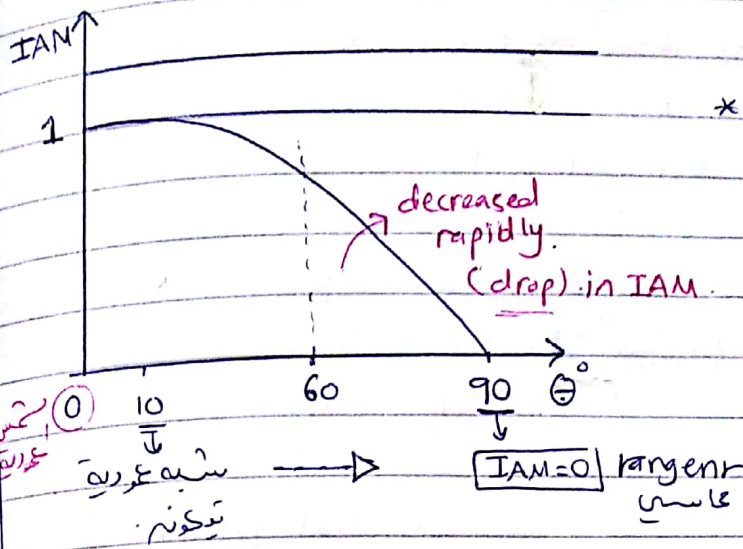 IAM
1
*
decreased
rapidly.
(drop) in IAM.
0 10 60 90 θ°
الشمس
عمودية
شبه عمودية
IAM=0 tangent
مماسي
بتكون